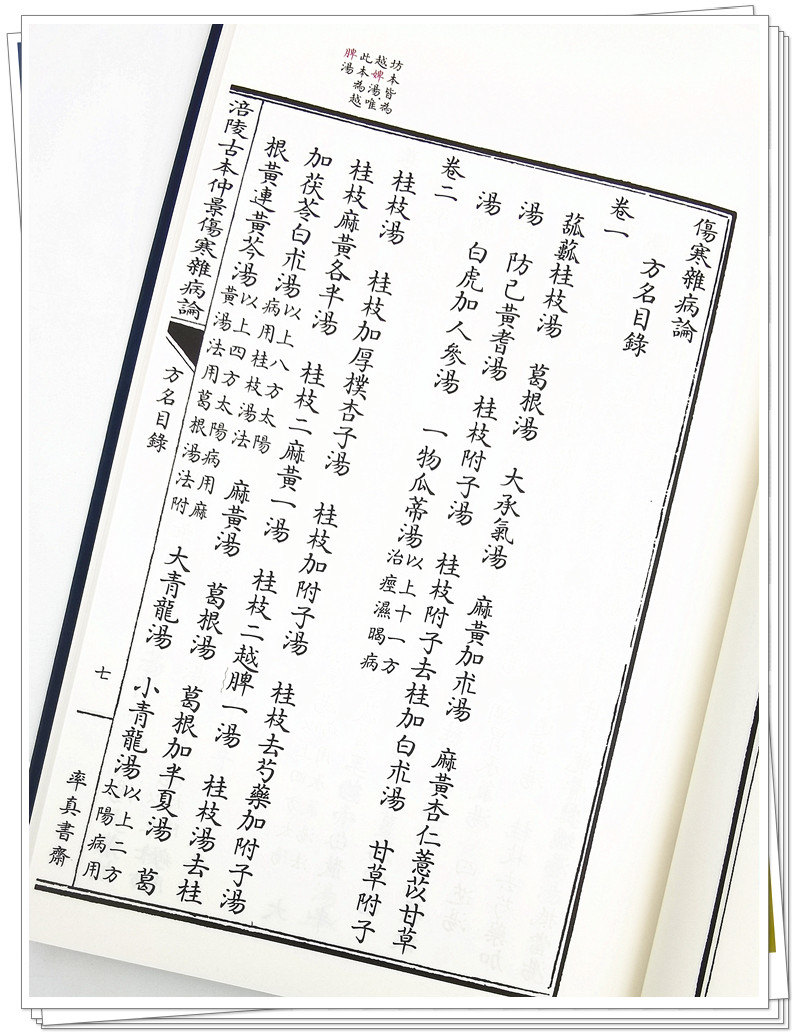 坊本皆為
越婢湯，唯
此本為越
脾湯
傷寒雜病論
方名目錄
卷一
桂枝湯 葛根湯 大承氣湯 麻黃加朮湯 麻黃杏仁薏苡甘草
湯 防己黃耆湯 桂枝附子湯 桂枝附子去桂加白朮湯 甘草附子
湯 白虎加人參湯 一物瓜蒂湯 以上十一方治痙濕暍病
卷二
桂枝湯 桂枝加厚樸杏子湯 桂枝加附子湯 桂枝去芍藥加附子湯
桂枝麻黃各半湯 桂枝二麻黃一湯 桂枝二越脾一湯 桂枝湯去桂
加茯苓白朮湯 以上八方太陽病用桂枝湯法 麻黃湯 葛根湯 葛根加半夏湯 葛
根黃連黃芩湯 以上四方太陽病用麻黃湯法用葛根湯法附 大青龍湯 小青龍湯 以上二方太陽病用
涪陵古本仲景傷寒雜病論 方名目錄 七 率真書齋